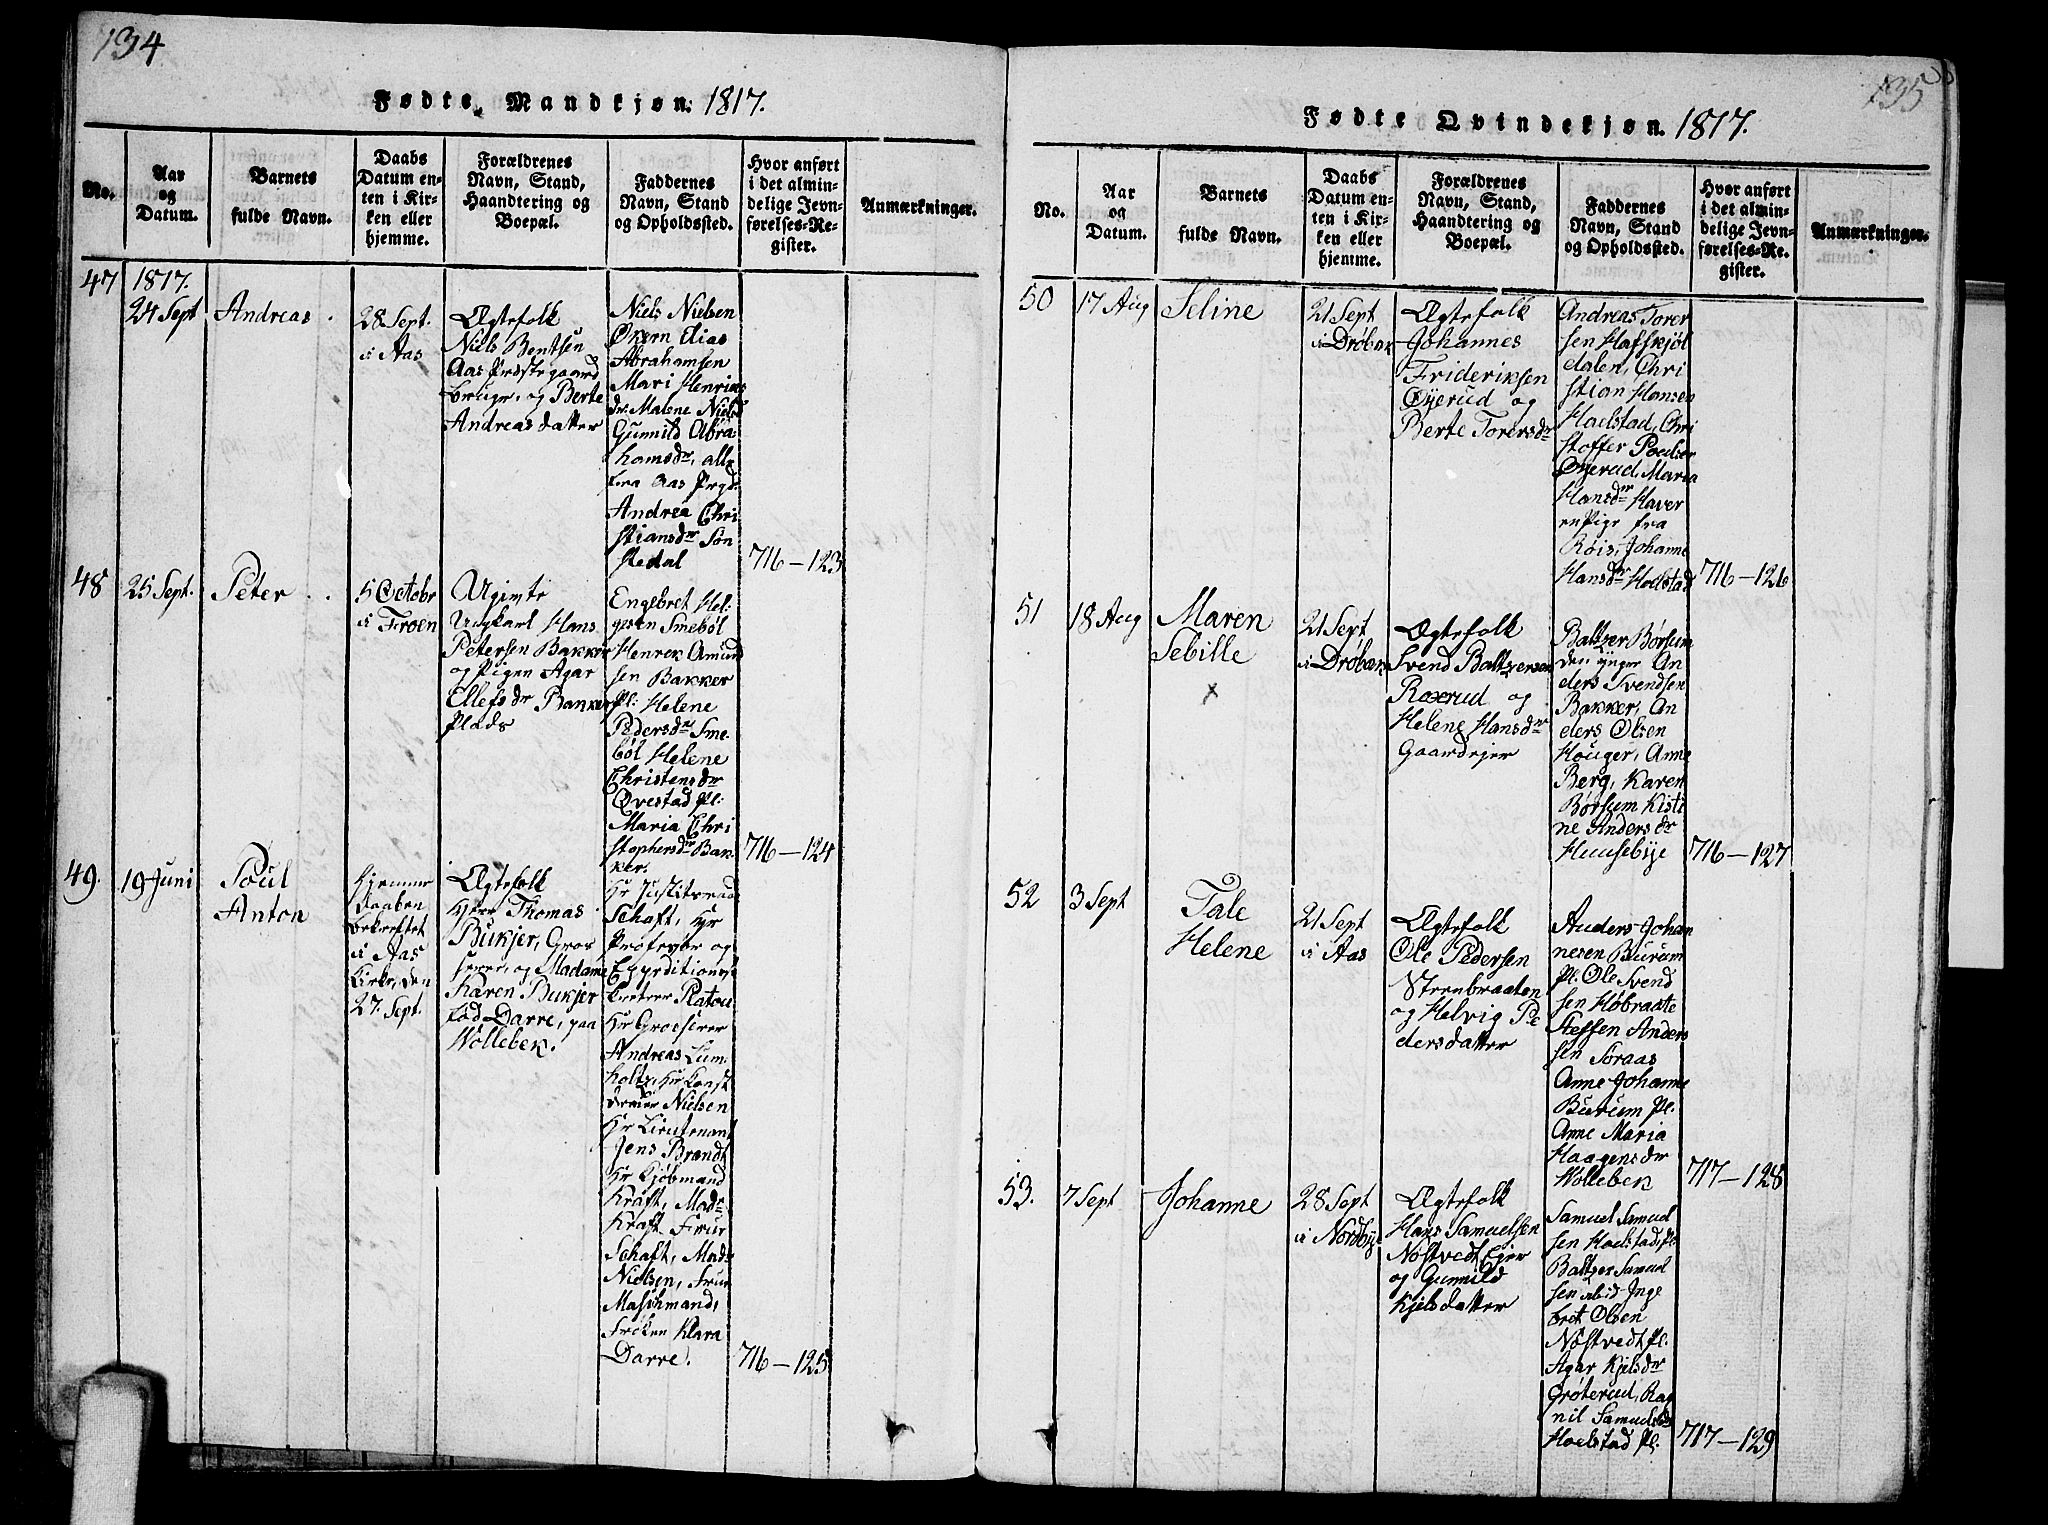 134
Fødte Mandkjøn: 1817.
No.
Aar
og
Datum.
Barnets
fulde Navn.
Daabs
Datum en-
ten i Kir-
ken eller
hjemme.
Forældrenes
Navn, Stand,
Haandtering og
Boepæl.
Faddernes
Navn, Stand
og Opholdssted.
Hvor anført
i det almin-
delige Jevn-
førelses-Re-
gister.
Anmærkninger.
47
1817.
24 Sept
Andreas
28 Sept.
i Aas
Ægtefolk
Niels Bentsen
Aas Præstegaard
bruger, og Berte
Andreasdatter
Niels Nielsen
Økern Elias
Abrahamsen
Mari Henriks
dr. Malene Nielsd
Gunnild Abra-
hamsdr, alle
fra Aas Prgd.
Andrea Chri
stiansdr Søn
stedal
716-123
48
25 Sept.
Peter
5 Octobr
i Froen
Ugivte
Ungkarl Hans
Petersen Bakker
og Pigen Agar
Ellefsdr Bakker
Plads
Engebret Hel-
gesen Smebøl
Henrek Amund
sen Bakker
Pl: Helene
Pedersdr Sme-
bøl Helene
Christensdr
Øvestad Pl:
Maria Chri
stophersdr Bak-
ker.
716-124
49.
19 Juni
Poul
Anton
Hjemme
daaben
bekreftet
i Aas
Kirke, den
27. Sept.
Ægtefolk
Herr Thomas
Bukjer, Gros
serer, og Madame
Karen Bukjer
fød Darre, paa
Wollebek.
Hr Justitsraad
Schaft, Hr
Profesør og
Expeditions
Platou
Hr Grosserer
Andreas Lum-
holtz, Hr Const
Nielsen
Hr Lieutenant
Jens Brandt
Hr Kjøbmand
Kraft, Madr
Kraft Frue
Schaft, Mad:
Nielsen, Frue
Maschmand,
Frøken Klara
Darre.
716-125
135
Fødte Qvindekjøn. 1817.
No.
Aar
og
Datum.
Barnets
fulde Navn.
Daabs
Datum en-
ten i Kir-
ken eller
hjemme.
Forældrenes
Navn, Stand,
Haandtering og
Boepæl.
Faddernes
Navn, Stand
og Opholdssted.
Hvor anført
i det almin-
delige Jevn-
førelses-Re-
gister.
Anmærkninger.
50
17 Aug
Seline
21 Sept
i Drøbak
Ægtefolk
Johannes
Frideriksen
Øyerud og
Berte Torersdr
Andreas Torer
sen Hafskjøl
dalen, Chri
stian Hansen
Haelstad, Chri
stoffer Poulsen
Øyerud, Maria
Hansdr Haver
en Pige fra
Røis, Johanne
Hansdr Haelstad
716-126
51
18 Aug
Maren
Sebille
21 Sept
i Drøbak
Ægtefolk
Svend Baltzersen
Roxerud og
Helene Hansdr
Gaardejer
Baltzer Børsum
den yngre An
ders Svendsen
Bakker, An
ders Olsen
Houger, Anne
Berg, Karen
Børsum Kisti
ne Andersdr
Huusebye
716-127
52
3 Sept
Tale
Helene
21 Sept
i Aas
Ægtefolk
Ole Pedersen
Steenbraaten
og Helvig Pe
dersdatter
Anders Johan
nesen Burum
Pl. Ole Svend
sen Høbraate
Steffen Anders
sen Søraas
Anne Johanne
Burum Pl.
Anne Maria
Haagensdr
Wollebek
717-128
53.
7 Sept
Johanne
28 Sept
i Nordbye
Ægtefolk
Hans Samuelsen
Nøstvedt Ejer
og Gunnild
Kjelsdatter
Samuel Samuel
sen Haelstad, Pl.
Baltzer Samuel
sen ibid Inge
bret Olsen
Nøstvedt Pl.
Agar Kjelsdr
Grøterud, Rag
nil Samuelsdr
Haelstad Pl.
717-129